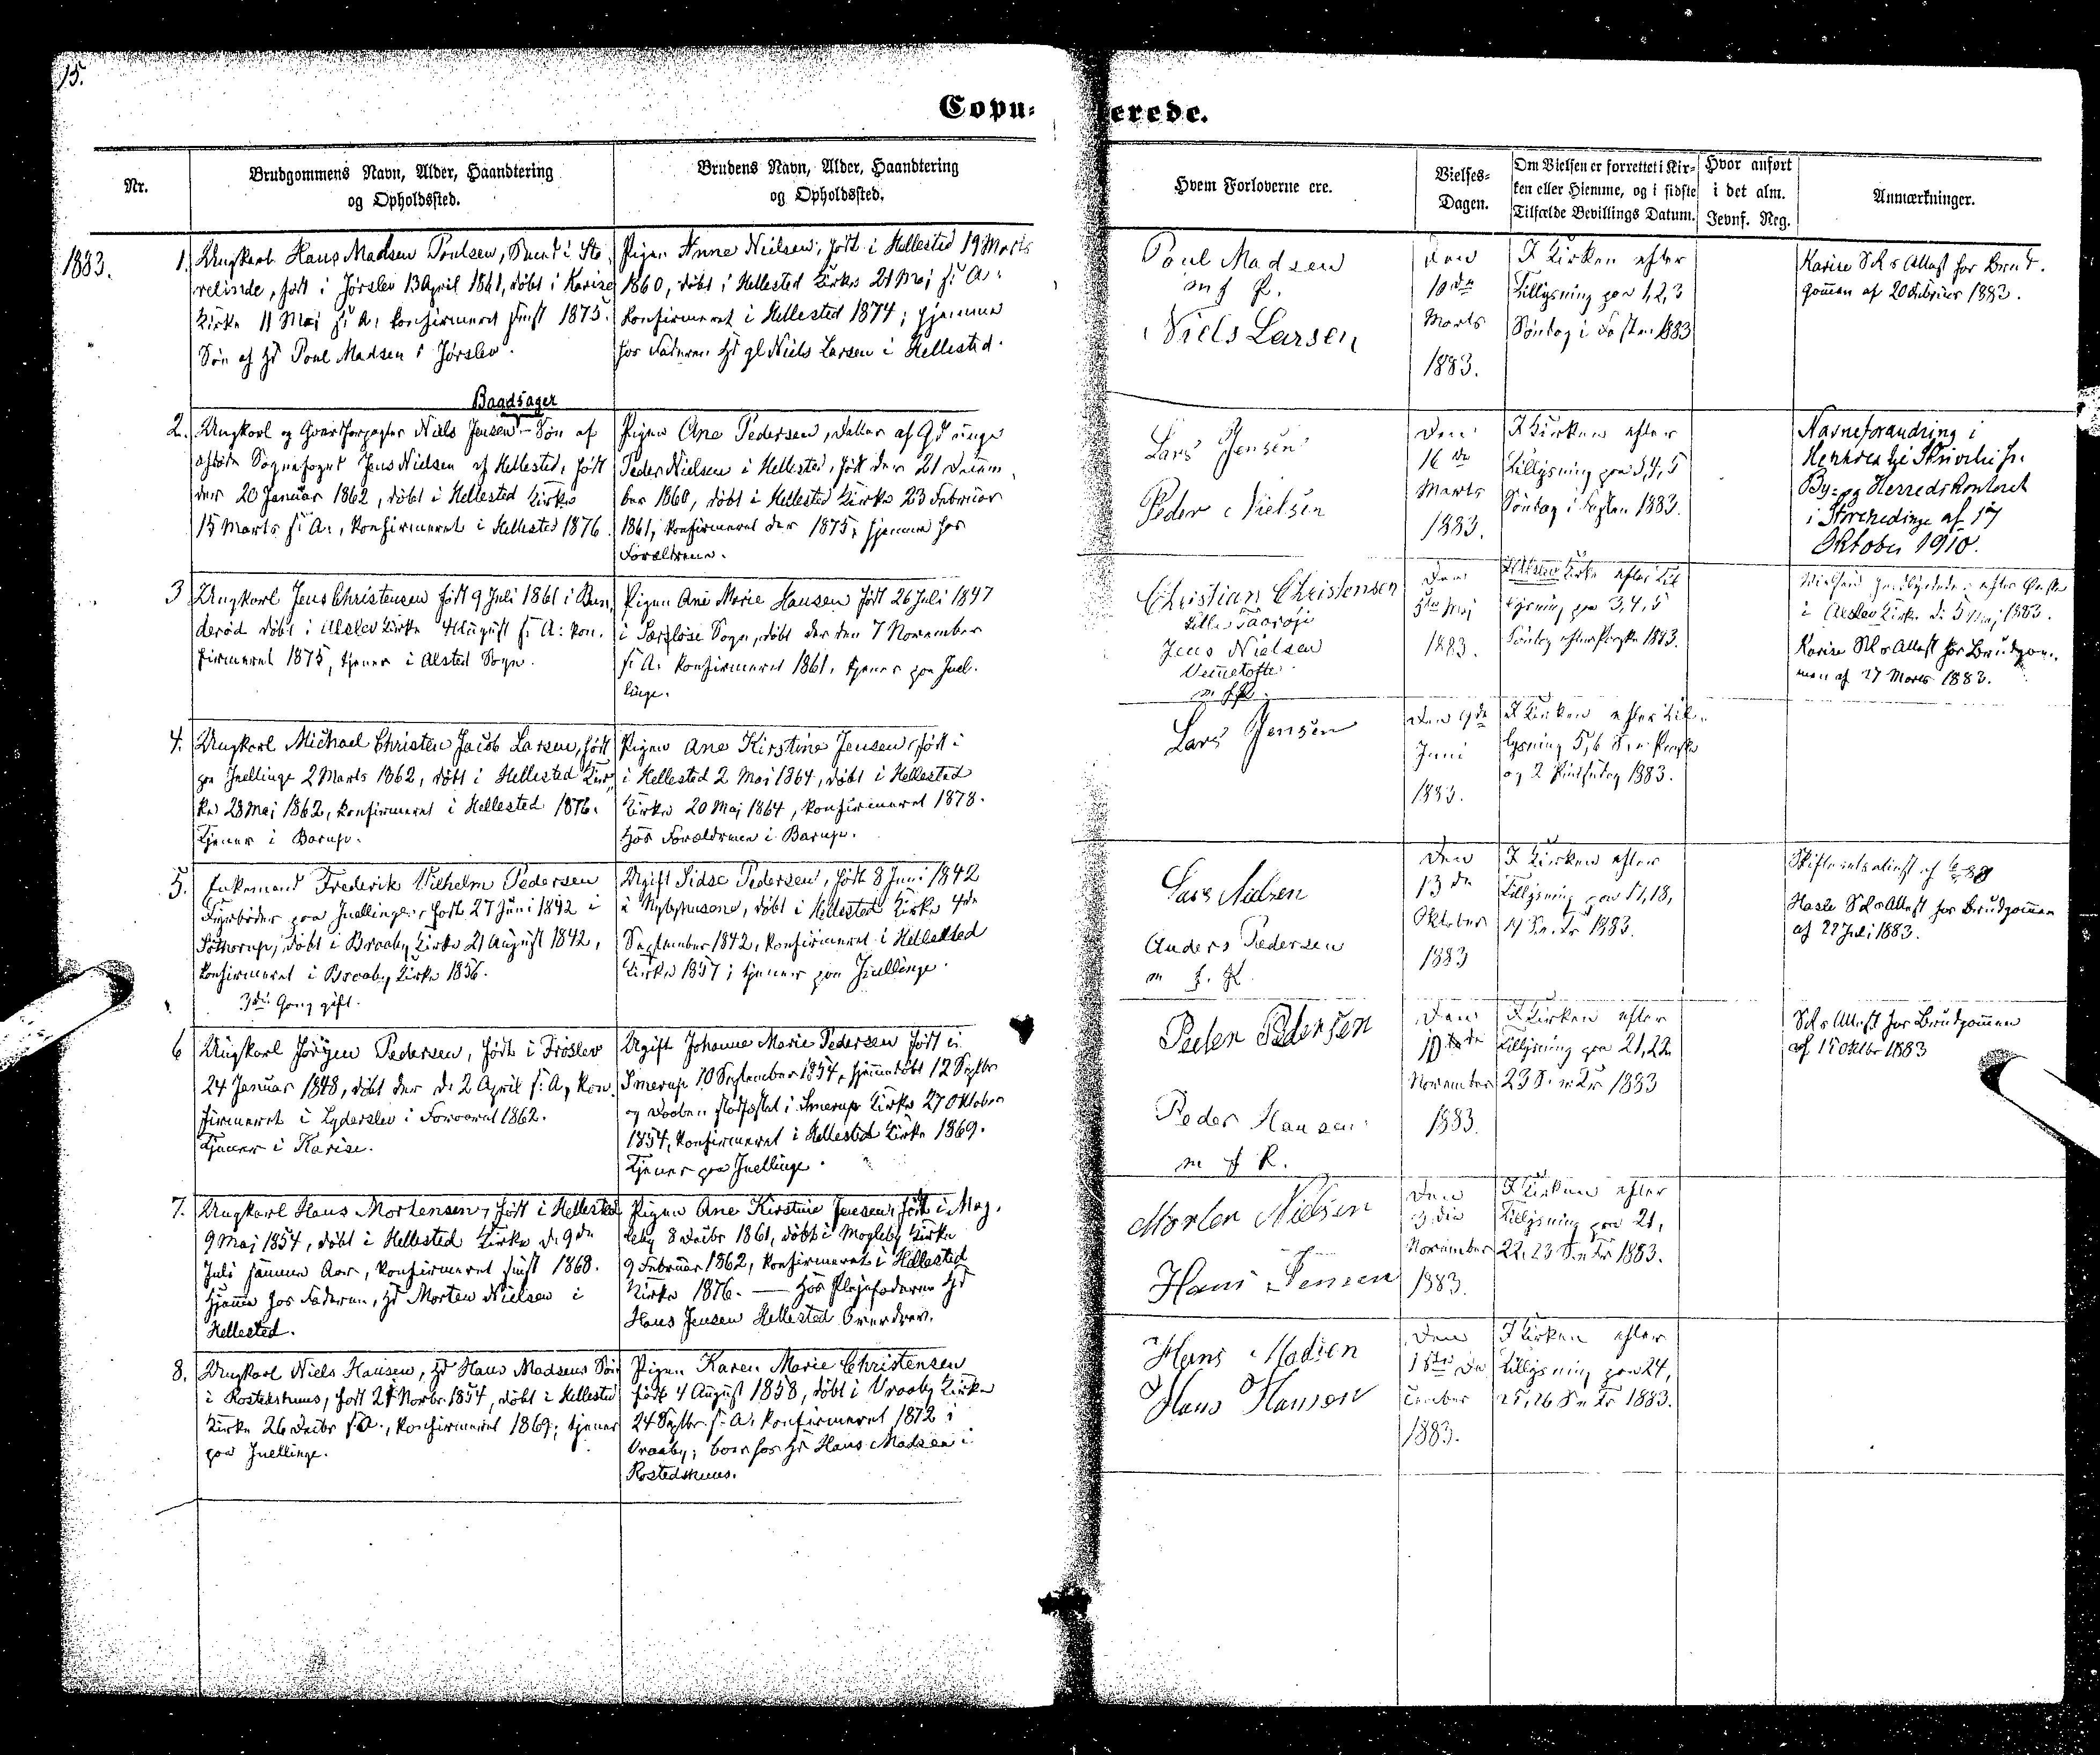 15.
Copulerede.
Nr.
Brudgommens Navn, Alder, Haandtering
og Opholdssted.
Brudens Navn, Alder, Haandtering
og Opholdssted.
Hvem Forloverne ere.
Vielses-
Dagen.
Om Vielsen er forrettet i Kir-
ken eller Hjemme, og i sidste
Tilfælde Bevillings Datum.
Hvor anført
i det alm.
Jevnf. Reg.
Anmærkninger.
1883.
1.
Ungkarl Hans Madsen Poulsen, i
født i Jørslev 13 April 1861, døbt i Karise
Kirke 11 Maj s. A. konfirmeret 1875.
Søn af Poul Madsen i Jørslev.
Pigen Anne Nielsen, født i Hellested 19 Marts
1860, døbt i Hellested Kirke 21 Maj s. A.
Konfirmeret i Hellested 1874; hjemme
hos Faderen gl. Niels Larsen i Hellested.
Poul Madsen
m f P.
Niels Larsen
Den
10de
Marts
1883.
I Kirken efter
Tillysning paa 1, 2, 3
Søndag i Fasten 1883
Karise Attest for Brud-
gommen af 20 Februar 1883.
2.
Baadsager
Ungkarl og Niels Jensen - Søn af
Sognefoged Jens Nielsen af Hellested, født
den 20 Januar 1862, døbt i Hellested Kirke
15 Marts s. A., Konfirmeret i Hellested 1876
Pigen Ane Pedersen, Datter af
Peder Nielsen i Hellested, født den 21 Decem
ber 1860, døbt i Hellested Kirke 23 Februar
1861, konfirmeret der 1875, hjemme hos
Forældrene.
Lars Jensen
Peder Nielsen
Den
16de
Marts
1883.
I Kirken efter
Tillysning paa 3, 4, 5
Søndag i Fasten 1883.
Navneforandring i
By- og Herredskontoret
i Storehedinge af 17
Oktober 1910.
3
Ungkarl Jens Christensen født 9 Juli 1861 i
døbt i Alslev Kirke 4 August s. A. kon-
firmeret 1875, tjener i Alsted Sogn.
Pigen Ane Marie Hansen født 26 Juli 1847
i Sogn, døbt der den 7 November
s. A. konfirmeret 1861, tjener paa Juel-
linge.
Christian Christensen
Lille Taarøje
Jens Nielsen
Vemetofte
Den
5te Maj
1883.
Kirke efter Til
lysning paa 3, 4, 5
Søndag efter Paaske 1883.
i Alslev Kirke d. 5 Maj 1883.
Karise Attest for Brudgom-
men af 27 Marts 1883.
4.
Ungkarl Michael Christen Jacob Larsen, født
paa Juellinge 2 Marts 1862, døbt i Hellested Kir-
ke 28 Maj 1862, konfirmeret i Hellested 1876.
Tjener i Barup.
Pigen Ane Kirstine Jensen, født i
i Hellested 2 Maj 1864, døbt i Hellested
Kirke 20 Maj 1864, konfirmeret 1878.
Hos Forældrene i Barup.
Lars Jensen
Den 9de
Juni
1883.
I Kirken efter Til-
lysning 5, 6 S. e. Paaske
og 2 Pintsedag 1883.
5.
Enkemand Frederik Vilhelm Pedersen
Fyrbøder paa Juellinge, født 27 Juni 1842 i
døbt i Braaby Kirke 21 August 1842,
konfirmeret i Braaby Kirke 1856.
3die Gang gift.
Ugift Sidse Pedersen, født 8 Juni 1842
i Nybyhusene, døbt i Hellested Kirke 4de
September 1842, konfirmeret i Hellested
Kirke 1857; tjener paa Juellinge.
Lars Nielsen
Anders Pedersen
m f.
Den
13de
Oktober
1883
I Kirken efter
Tillysning paa 17, 18,
19 S. e. Tr 1883.
Hasle Attest for Brudgommen
af 22 Juli 1883.
6
Ungkarl Jørgen Pedersen, født i Frøslev
24 Januar 1848, døbt der d. 2 April s. A, kon-
firmeret i Lyderslev i Foraaret 1862.
Tjener i Karise.
Ugift Johanne Marie Pedersen født i
Smerup 10 September 1854, hjemmedøbt 12 Septbr
og Daaben stadfæstet i Smerup Kirke 27 Oktober
1854, konfirmeret i Hellested Kirke 1869.
Tjener paa Juellinge.
Peder Pedersen
Peder Hansen
m f P.
Den
November
1883.
I Kirken efter
Tillysning paa 21, 22
23 S. e. Tr 1883
Attest for Brudgommen
af 15 Oktbr 1883
7.
Ungkarl Hans Mortensen, født i Hellested
9 Maj 1854, døbt i Hellested Kirke d. 9de
Juli samme Aar, konfirmeret 1868.
Hjemme hos Faderen, Morten Nielsen i
Hellested.
Pigen Ane Kirstine Jensen, født i Mag-
leby 8 Decbr 1861, døbt i Magleby Kirke
9 Februar 1862, konfirmeret i Hellested
Kirke 1876. — Hos Plejefaderen
Hans Jensen Hellested Overdrev.
Morten Nielsen
Hans Jensen
Den
November
1883.
I Kirken efter
Tillysning paa 21,
22, 23 S. e. Tr 1883.
8.
Ungkarl Niels Hansen, Hans Madsens Søn
i født 27 Novbr. 1854, døbt i Hellested
Kirke 26 Decbr s. A., konfirmeret 1869; tjener
paa Juellinge.
Pigen Karen Marie Christensen
født 4 August 1858, døbt i Vraaby Kirke
24 Septbr. s. A. konfirmeret 1872 i
Vraaby; hos Hans Madsen i
Rostedshuus.
Hans Madsen
Hans Hansen
Den
cember
1883.
I Kirken efter
Tillysning paa 24,
25, 26 S. e. Tr 1883.